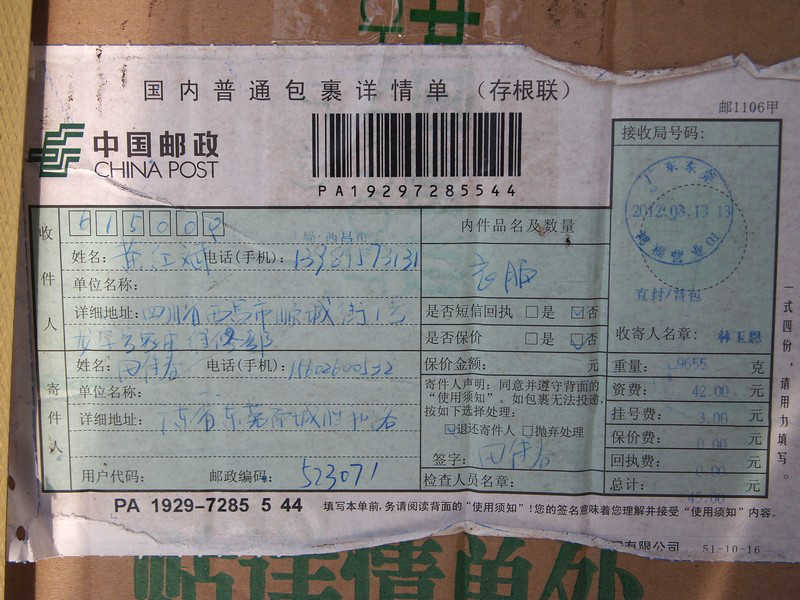 国内普通包裹详情单（存根联）
邮1106甲
中国邮政
CHINA POST
PA19297285544
接收局号码：
广东东莞
2012.03.13 13
直封/背包
收寄人名章：
收件人
615000
姓名： 电话(手机)：
单位名称：
详细地址：四川省西昌市顺城街1号
寄件人
姓名： 电话(手机)：
单位名称：
详细地址：
用户代码： 邮政编码：523071
内件品名及数量
衣服
是否短信回执 □是 ☑否
是否保价 □是 ☑否
保价金额： 元
寄件人声明：同意并遵守背面的
“使用须知”。如包裹无法投递，
按如下选择处理：
☑退还寄件人 □抛弃处理
签字：
检查人员名章：
重量： 9655 克
资费： 42.00 元
挂号费： 3.00 元
保价费： 0.00 元
回执费： 0.00 元
总计： 45.00 元
一式四份，请用力填写。
PA 1929-7285 5 44 填写本单前，务请阅读背面的“使用须知”！您的签名意味着您理解并接受“使用须知”内容。
有限公司 51-10-16
贴详情单处